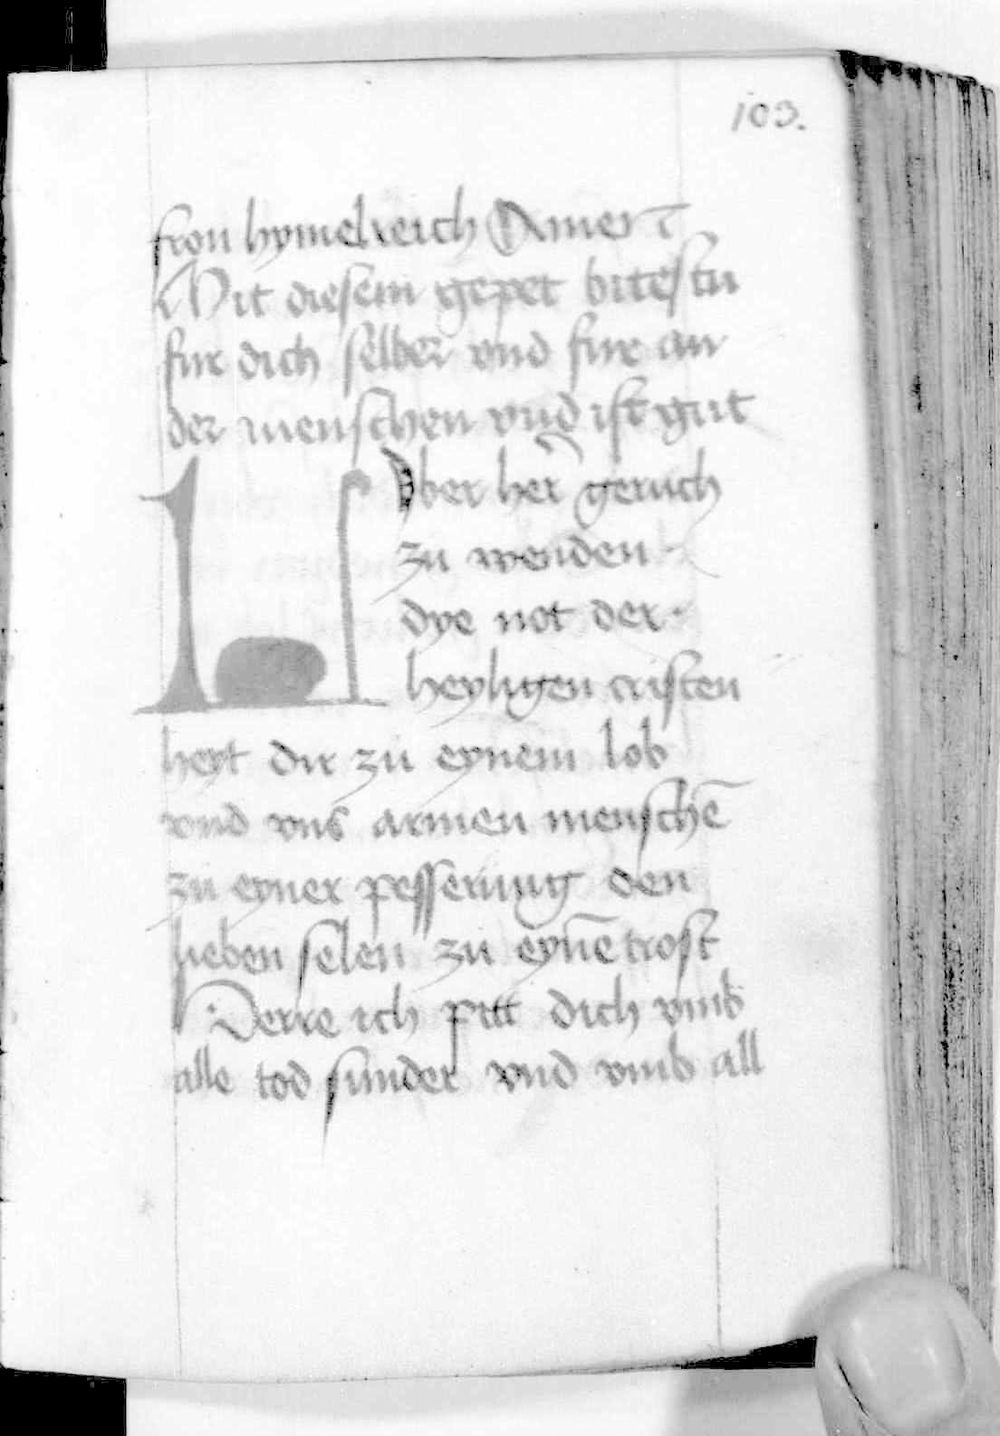 103.
fron hymelreich Amen
Mit diesem gepet bitestu
fur dich selber vnd fur an
der menschen vnd ist gut
Lyber her geruch
zu wenden
dye not der
heyligen cristen
heyt dir zu eynem lob
vnd vns armen menschē
zu eyner pesserung den
lieben selen zu eynē trost
Herre ich pitt dich vmb
alle tod sunder vnd vmb all